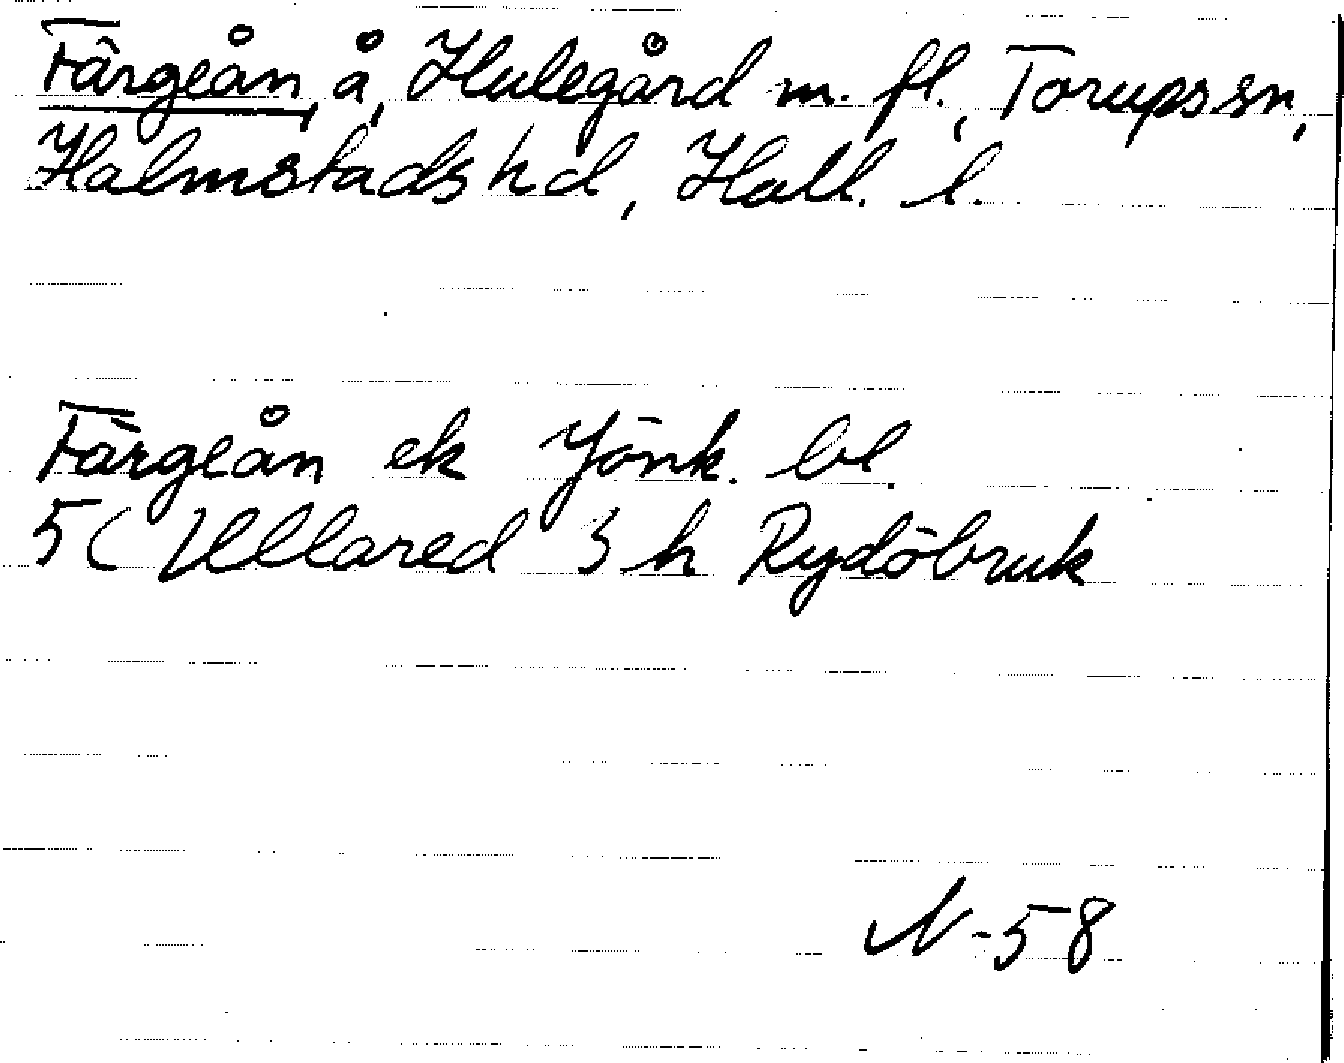 Färgeån, å, Hulegård m. fl., Torups sn,
Halmstads hd, Hall. l.
Färgeån ek Jönk. bl.
5C Ullared 3 h Rydöbruk
N-58